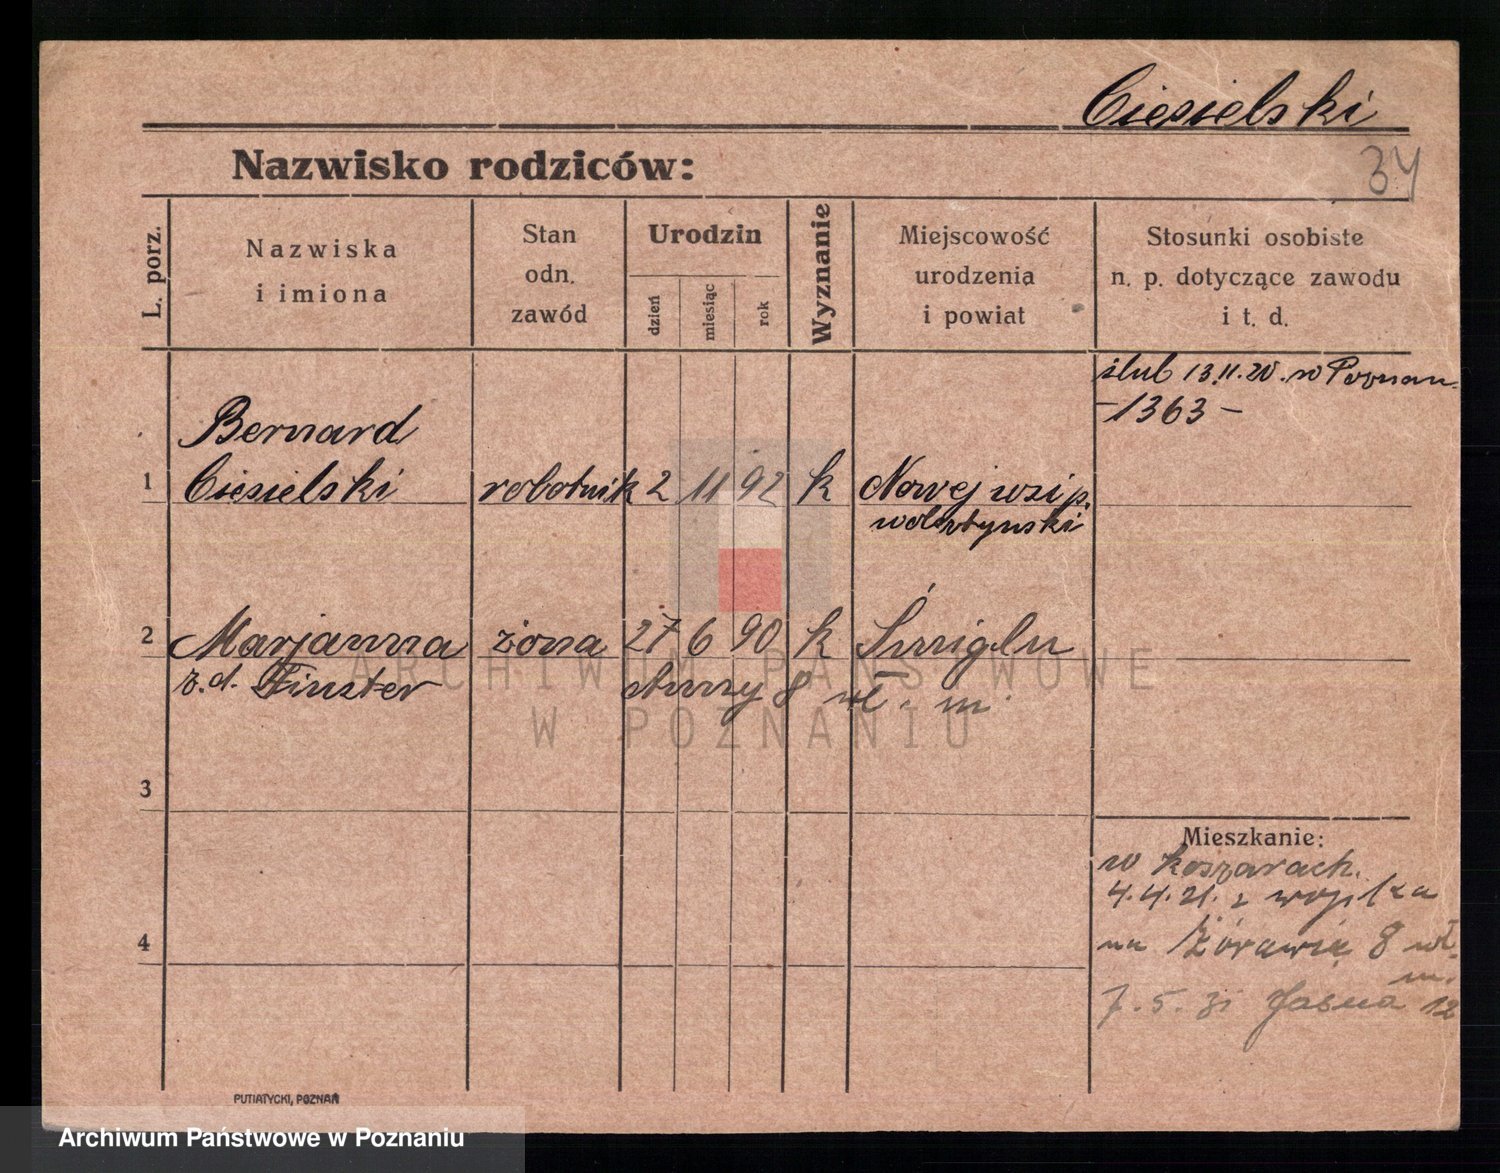 Ciesielski
Nazwisko rodziców:
34
L. porz.
Nazwiska
i imiona
Stan
odn.
zawód
Urodzin
dzień
miesiąc
rok
Wyznanie
Miejscowość
urodzenia
i powiat
Stosunki osobiste
n. p. dotyczące zawodu
i t. d.
ślub 13.11.20. w Poznan.
-1363-
Bernard
1 Ciesielski robotnik 2 11 92 k Nowej wsi p.
wolsztynski
2 Marjanna żona 27 6 90 k Śmiglu
z.d. Finster 8 wł. m.
3
Mieszkanie:
w koszarach.
4.4.21. z wojska
4
na Żórawię 8 wł.
m.
7.5.31 Jasna 12
PUTIATYCKI, POZNAŃ
ARCHIWUM PAŃSTWOWE
W POZNANIU
Archiwum Państwowe w Poznaniu